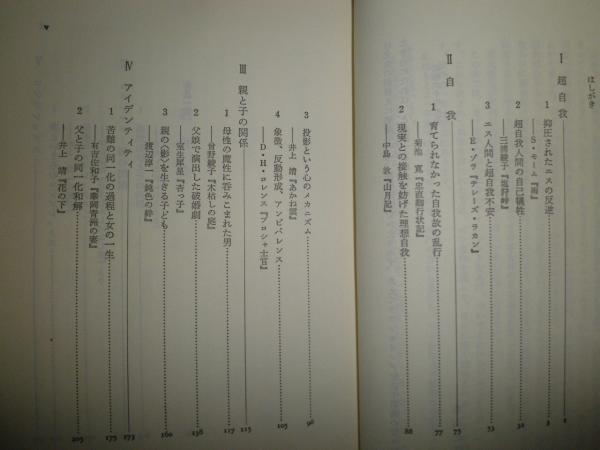 はしがき
Ⅰ 超自我 1
1 抑圧されたエスの反逆 3
——S・モーム『雨』
2 超自我人間の自己犠牲 32
——三浦綾子『塩狩峠』
3 エス人間と超自我不安 53
——E・ゾラ『テレーズ・ラカン』
Ⅱ 自我 75
1 育てられなかった自我故の乱行 77
——菊池 寛『忠直卿行状記』
2 現実との接触を妨げた理想自我 88
——中島 敦『山月記』
3 投影という心のメカニズム 96
——井上 靖『あかね雲』
4 象徴、反動形成、アンビバレンス 105
——D・H・ロレンス『プロシャ士官』
Ⅲ 親と子の関係 115
1 母性の魔性に呑みこまれた男 117
——曾野綾子『木枯しの庭』
2 父娘で演出した破婚劇 138
——室生犀星『杏っ子』
3 親の〈影〉を生きる子ども 160
——渡辺淳一『鈍色の絆』
Ⅳ アイデンティティ 173
1 苦難の同一化の過程と女の一生 175
——有吉佐和子『華岡青洲の妻』
2 父と子の同一化和解 205
——井上 靖『花の下』